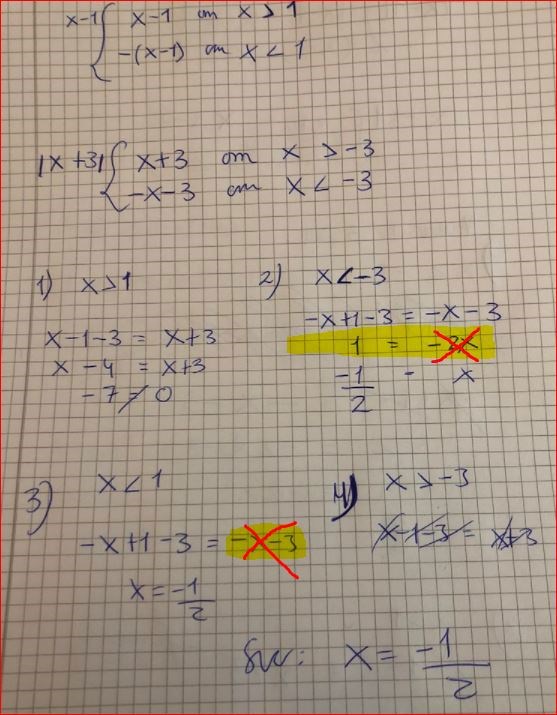 x-1 { x-1 om x > 1
-(x-1) om x < 1
|x+3| { x+3 om x > -3
-x-3 om x < -3
1) x>1
x-1-3 = x+3
x-4 = x+3
-7 ≠ 0
2) x<-3
-x+1-3 = -x-3
1 = -2x
-1/2 = x
3) x < 1
-x+1-3 = -x-3
x = -1/2
4) x > -3
x-1-3 = x+3
Svar: x = -1/2